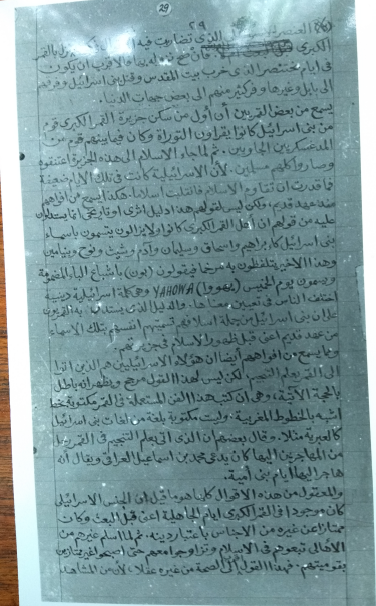 29
٢٩
الذى تضاربت فيه
الكبرى فان صح قوله بهذا فالاقرب ان يكون
فى ايام بختنصر الذى خرب بيت المقدس وقتل بنى اسرائيل وفرقهم
الى بابل وغيرها وفر كثير منهم الى بعض جهات الدنيا.
يسمع من بعض القمريين أن أول من سكن جزيرة القمر الكبرى قوم
من بنى اسرائيل كانوا يقرأون التوراة وكان فيما بينهم قوم من
المدغسكريين الجاويين. ثم لما جاء الاسلام الى هذه الجزيرة اعتنقوه
وصاروا كلهم مسلمين. لأن الاسرائيلية كانت فى تلك الايام ضعيفة
فما قدرت ان تقاوم الاسلام فانقلبت اسلاما. هكذا يسمع من افواههم
منذ عهد قديم. ولكن ليس لقولهم هذا دليل أثرى او تاريخى انما يستدلون
عليه من قولهم ان أهل القمر الكبرى كانوا ولا يزالون يتسمون باسماء
بنى اسرائيل كابراهيم واسحاق وسليمان وآدم وشيث ونوح وبنيامين
وهذا الاخير يتلفظون به مرخما فيقولون (بون) باشباع الباء المضمومة
ويسمون يوم الخميس (يهووا) YAHOWA وهى كلمة اسرائيلية دينية
اختلف الناس فى تعيين معناها. والدليل الذى يستدل به القمريون
على ان بنى اسرائيل من جملة اسلافهم تسميتهم انفسهم بتلك الاسماء
من عهد قديم اعنى قبل ظهور الاسلام فى جزيرتهم.
ومما يسمع من افواههم ايضا ان هؤلاء الاسرائيليين هم الذين اتوا
الى القمر بعلم التنجيم. لكن ليس لهذا القول مرجع ويظهر انه باطل
بالحجة الآتية، وهى ان كتب هذا الفن المستعملة فى القمر مكتوبة بخط
اشبه بالخطوط المغربية. وليست مكتوبة بلغة من لغات بنى اسرائيل
كالعبرية مثلا. وقال بعضهم ان الذى اتى بعلم التنجيم فى القمر
من المهاجرين اليها كان يدعى محمد بن اسماعيل العراقى ويقال أنه
هاجر اليها أيام بنى أمية.
والمعقول من هذه الاقوال كلها هو ما قيل ان الجنس الاسرائيلى
كان موجودا فى القمر الكبرى ايام الجاهلية اعنى قبل البعث وكان
ممتازا عن غيره من الاجناس باعتبار دينه. ثم لما اسلم غيرهم من
الأهالى تبعوهم فى الاسلام وتزاوجوا معهم حتى اصبحوا غير ممتازين
بقوميتهم. فهذا القول الى الصحة من غيره عقلا، لأن من المشاهد